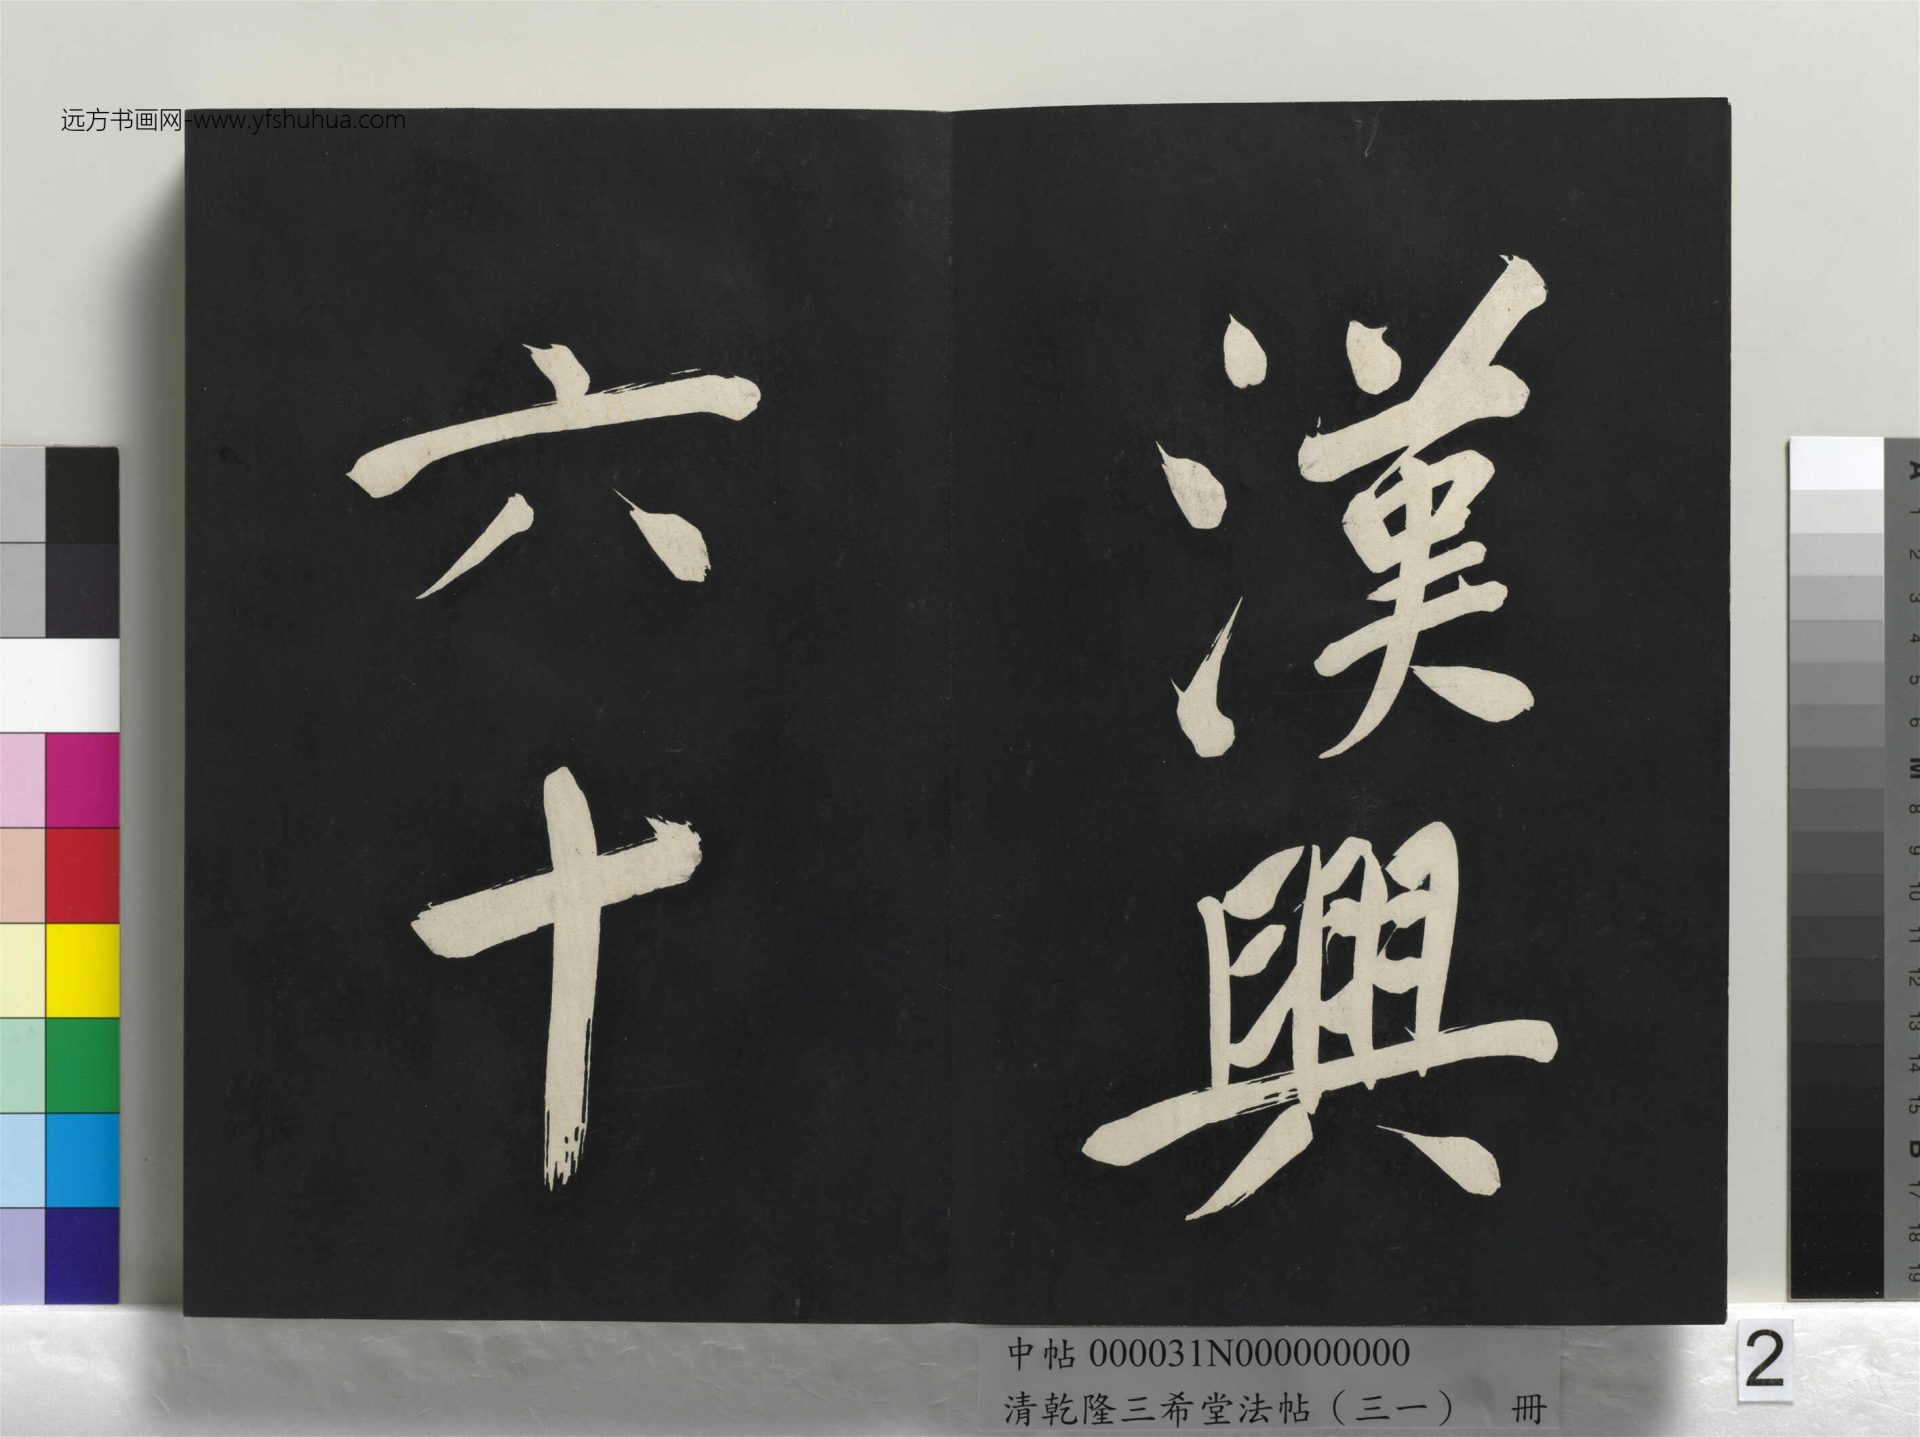 远方书画网-www.yfshuhua.com
漢興
六十
中帖 000031N000000000
清乾隆三希堂法帖（三一） 冊
2
A
1
2
3
4
5
6
M
8
9
10
11
12
13
14
15
B
17
18
19